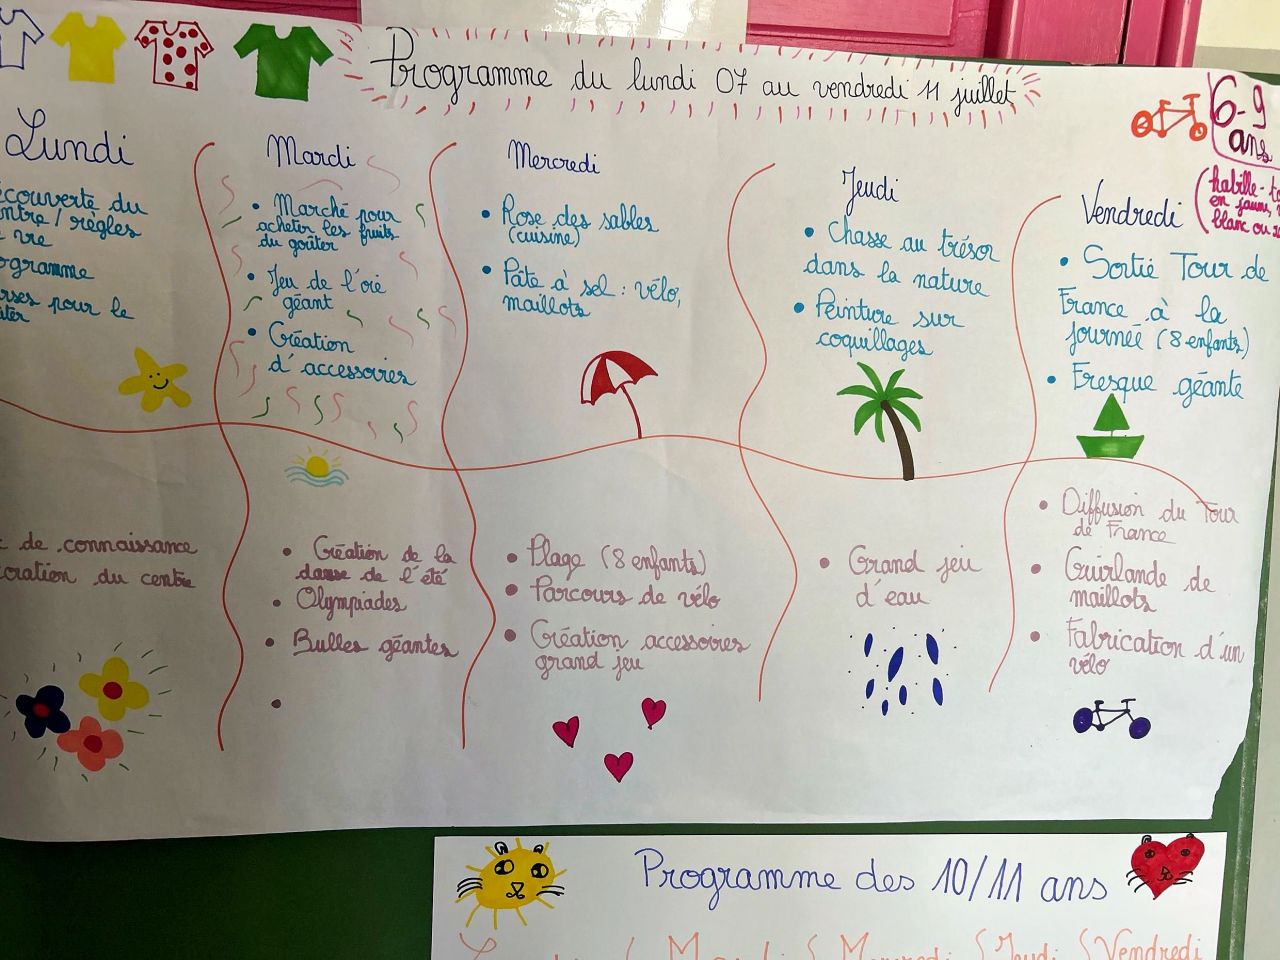 Programme du lundi 07 au vendredi 11 juillet
6-9
ans
habille-
en jaune,
blanc ou
Lundi
écouverte du
ntre / règles
vie
ogramme
rses pour le
ûter
de connaissance
oration du centre
Mardi
• Marché pour
acheter les fruits
du goûter
• Jeu de l'oie
géant
• Création
d'accessoires
• Création de la
danse de l'été
• Olympiades
• Bulles géantes
•
Mercredi
• Rose des sables
(cuisine)
• Pâte à sel : vélo,
maillots
• Plage (8 enfants)
• Parcours de vélo
• Création accessoires
grand jeu
Jeudi
• Chasse au trésor
dans la nature
• Peinture sur
coquillages
• Grand jeu
d'eau
Vendredi
• Sortie Tour de
France à la
journée (8 enfants)
• Fresque géante
• Diffusion du Tour
de France
• Guirlande de
maillots
• Fabrication d'un
vélo
Programme des 10/11 ans
Mercredi
Jeudi
Vendredi